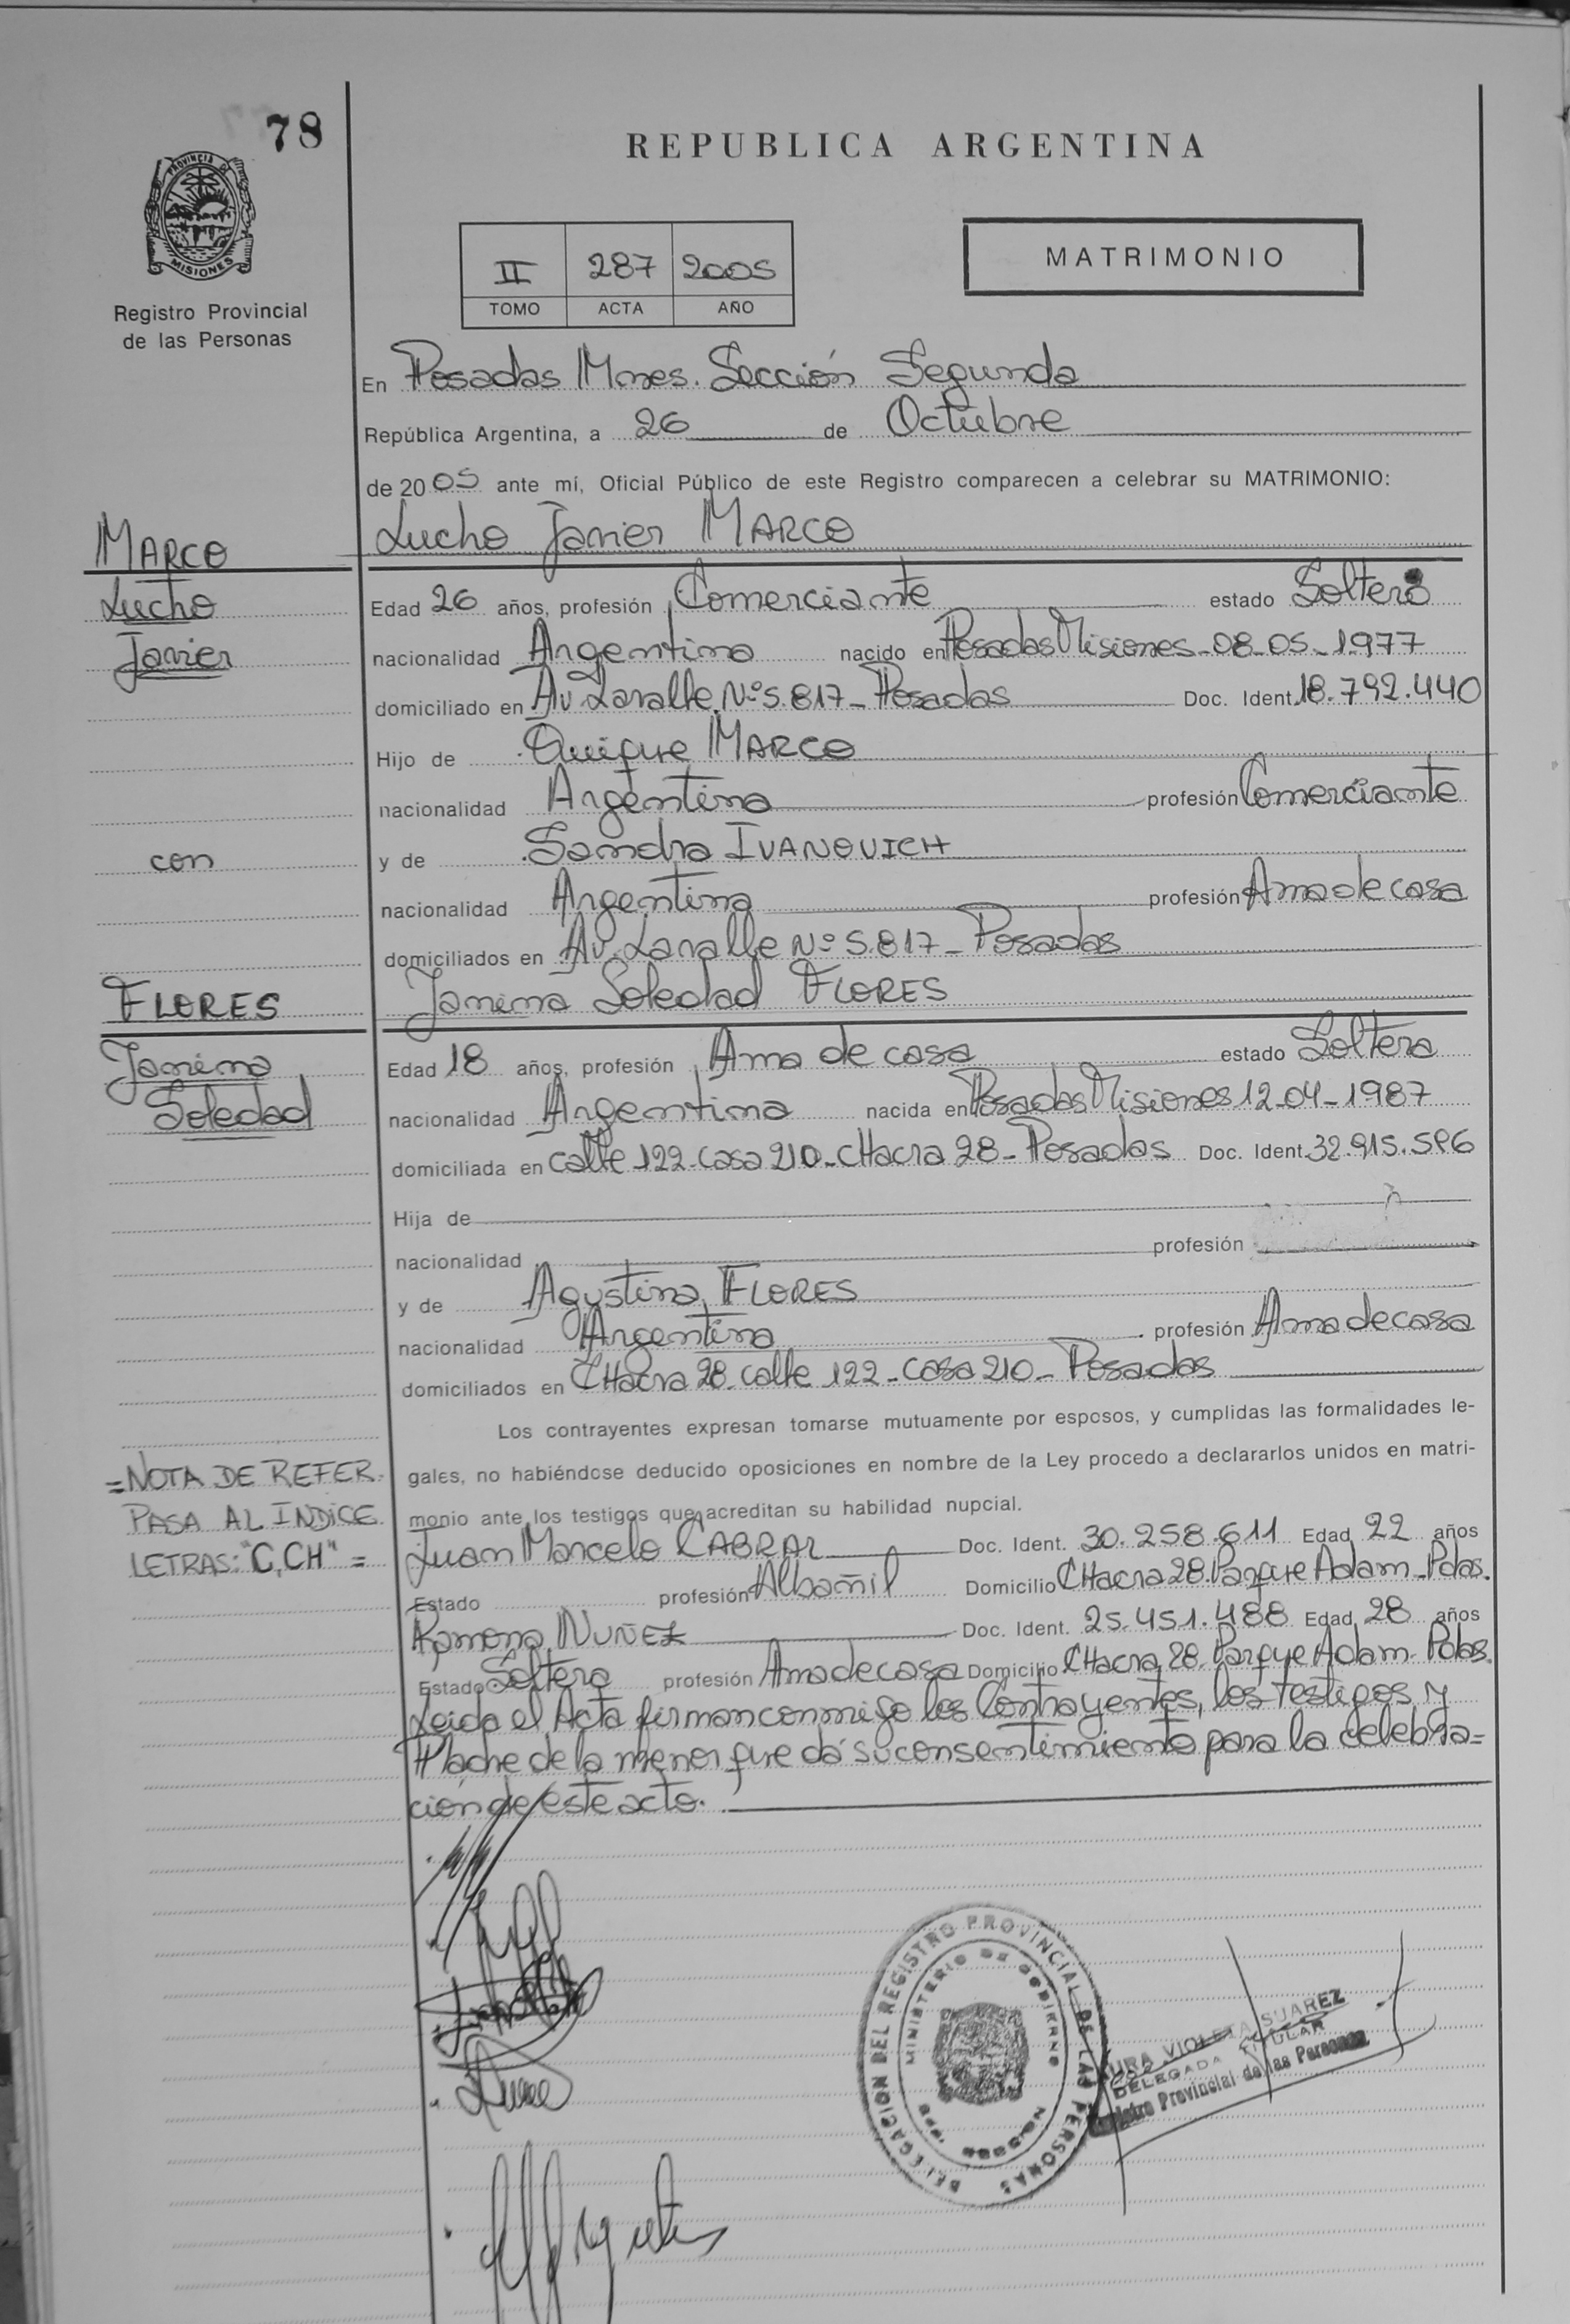 78
REPUBLICA ARGENTINA
PROVINCIA DE
MISIONES
Registro Provincial
de las Personas
II 287 2005
TOMO ACTA AÑO
MATRIMONIO
En Posadas Mnes. Sección Segunda
República Argentina, a 26 de Octubre
de 2005 ante mí, Oficial Público de este Registro comparecen a celebrar su MATRIMONIO:
MARCO
Lucho Javier MARCO
Lucho
Edad 26 años, profesión Comerciante estado Soltero
Javier
nacionalidad Argentina nacido en Posadas Misiones-08-05-1977
domiciliado en Av Lavalle Nº 5.817- Posadas Doc. Ident. 18.792.440
Hijo de Quique MARCO
nacionalidad Argentina profesión Comerciante
con
y de Sandra IVANOVICH
nacionalidad Argentina profesión Ama de casa
domiciliados en Av. Lavalle Nº 5.817- Posadas
FLORES
Janina Soledad FLORES
Janina
Edad 18 años, profesión Ama de casa estado Soltera
Soledad
nacionalidad Argentina nacida en Posadas Misiones 12-04-1987
domiciliada en calle 122-casa 210-CHacra 28- Posadas Doc. Ident. 32.915.596
Hija de
nacionalidad profesión
y de Agustina FLORES
nacionalidad Argentina profesión Ama de casa
domiciliados en CHacra 28-calle 122-casa 210- Posadas
Los contrayentes expresan tomarse mutuamente por esposos, y cumplidas las formalidades le-
=NOTA DE REFER.
gales, no habiéndose deducido oposiciones en nombre de la Ley procedo a declararlos unidos en matri-
PASA AL INDICE
monio ante los testigos que acreditan su habilidad nupcial.
LETRAS: "C,CH"=
Juan Marcelo CABRAL Doc. Ident. 30.258.611 Edad 22 años
Estado profesión Albañil Domicilio CHacra 28. Parque Adam-Pdas.
Ramona NUÑEZ Doc. Ident. 25.451.488 Edad 28 años
Estado Soltera profesión Ama de casa Domicilio CHacra 28. Parque Adam-Pdas.
Leida el Acta firman conmigo los Contrayentes, los testigos y
Madre de la menor que dá su consentimiento para la celebra=
ción de este acto.
DELEGACION DEL REGISTRO PROVINCIAL DE LAS PERSONAS
MINISTERIO DE GOBIERNO
VIOLETA SUAREZ
DELEGADA TITULAR
Registro Provincial de las Personas